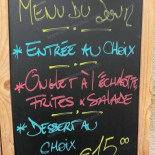 MENU DU JOUR
* ENTRÉE AU CHOIX
* ONGLET À L'ÉCHALOTE
FRITES & SALADE
* DESSERT AU
CHOIX
€15.00